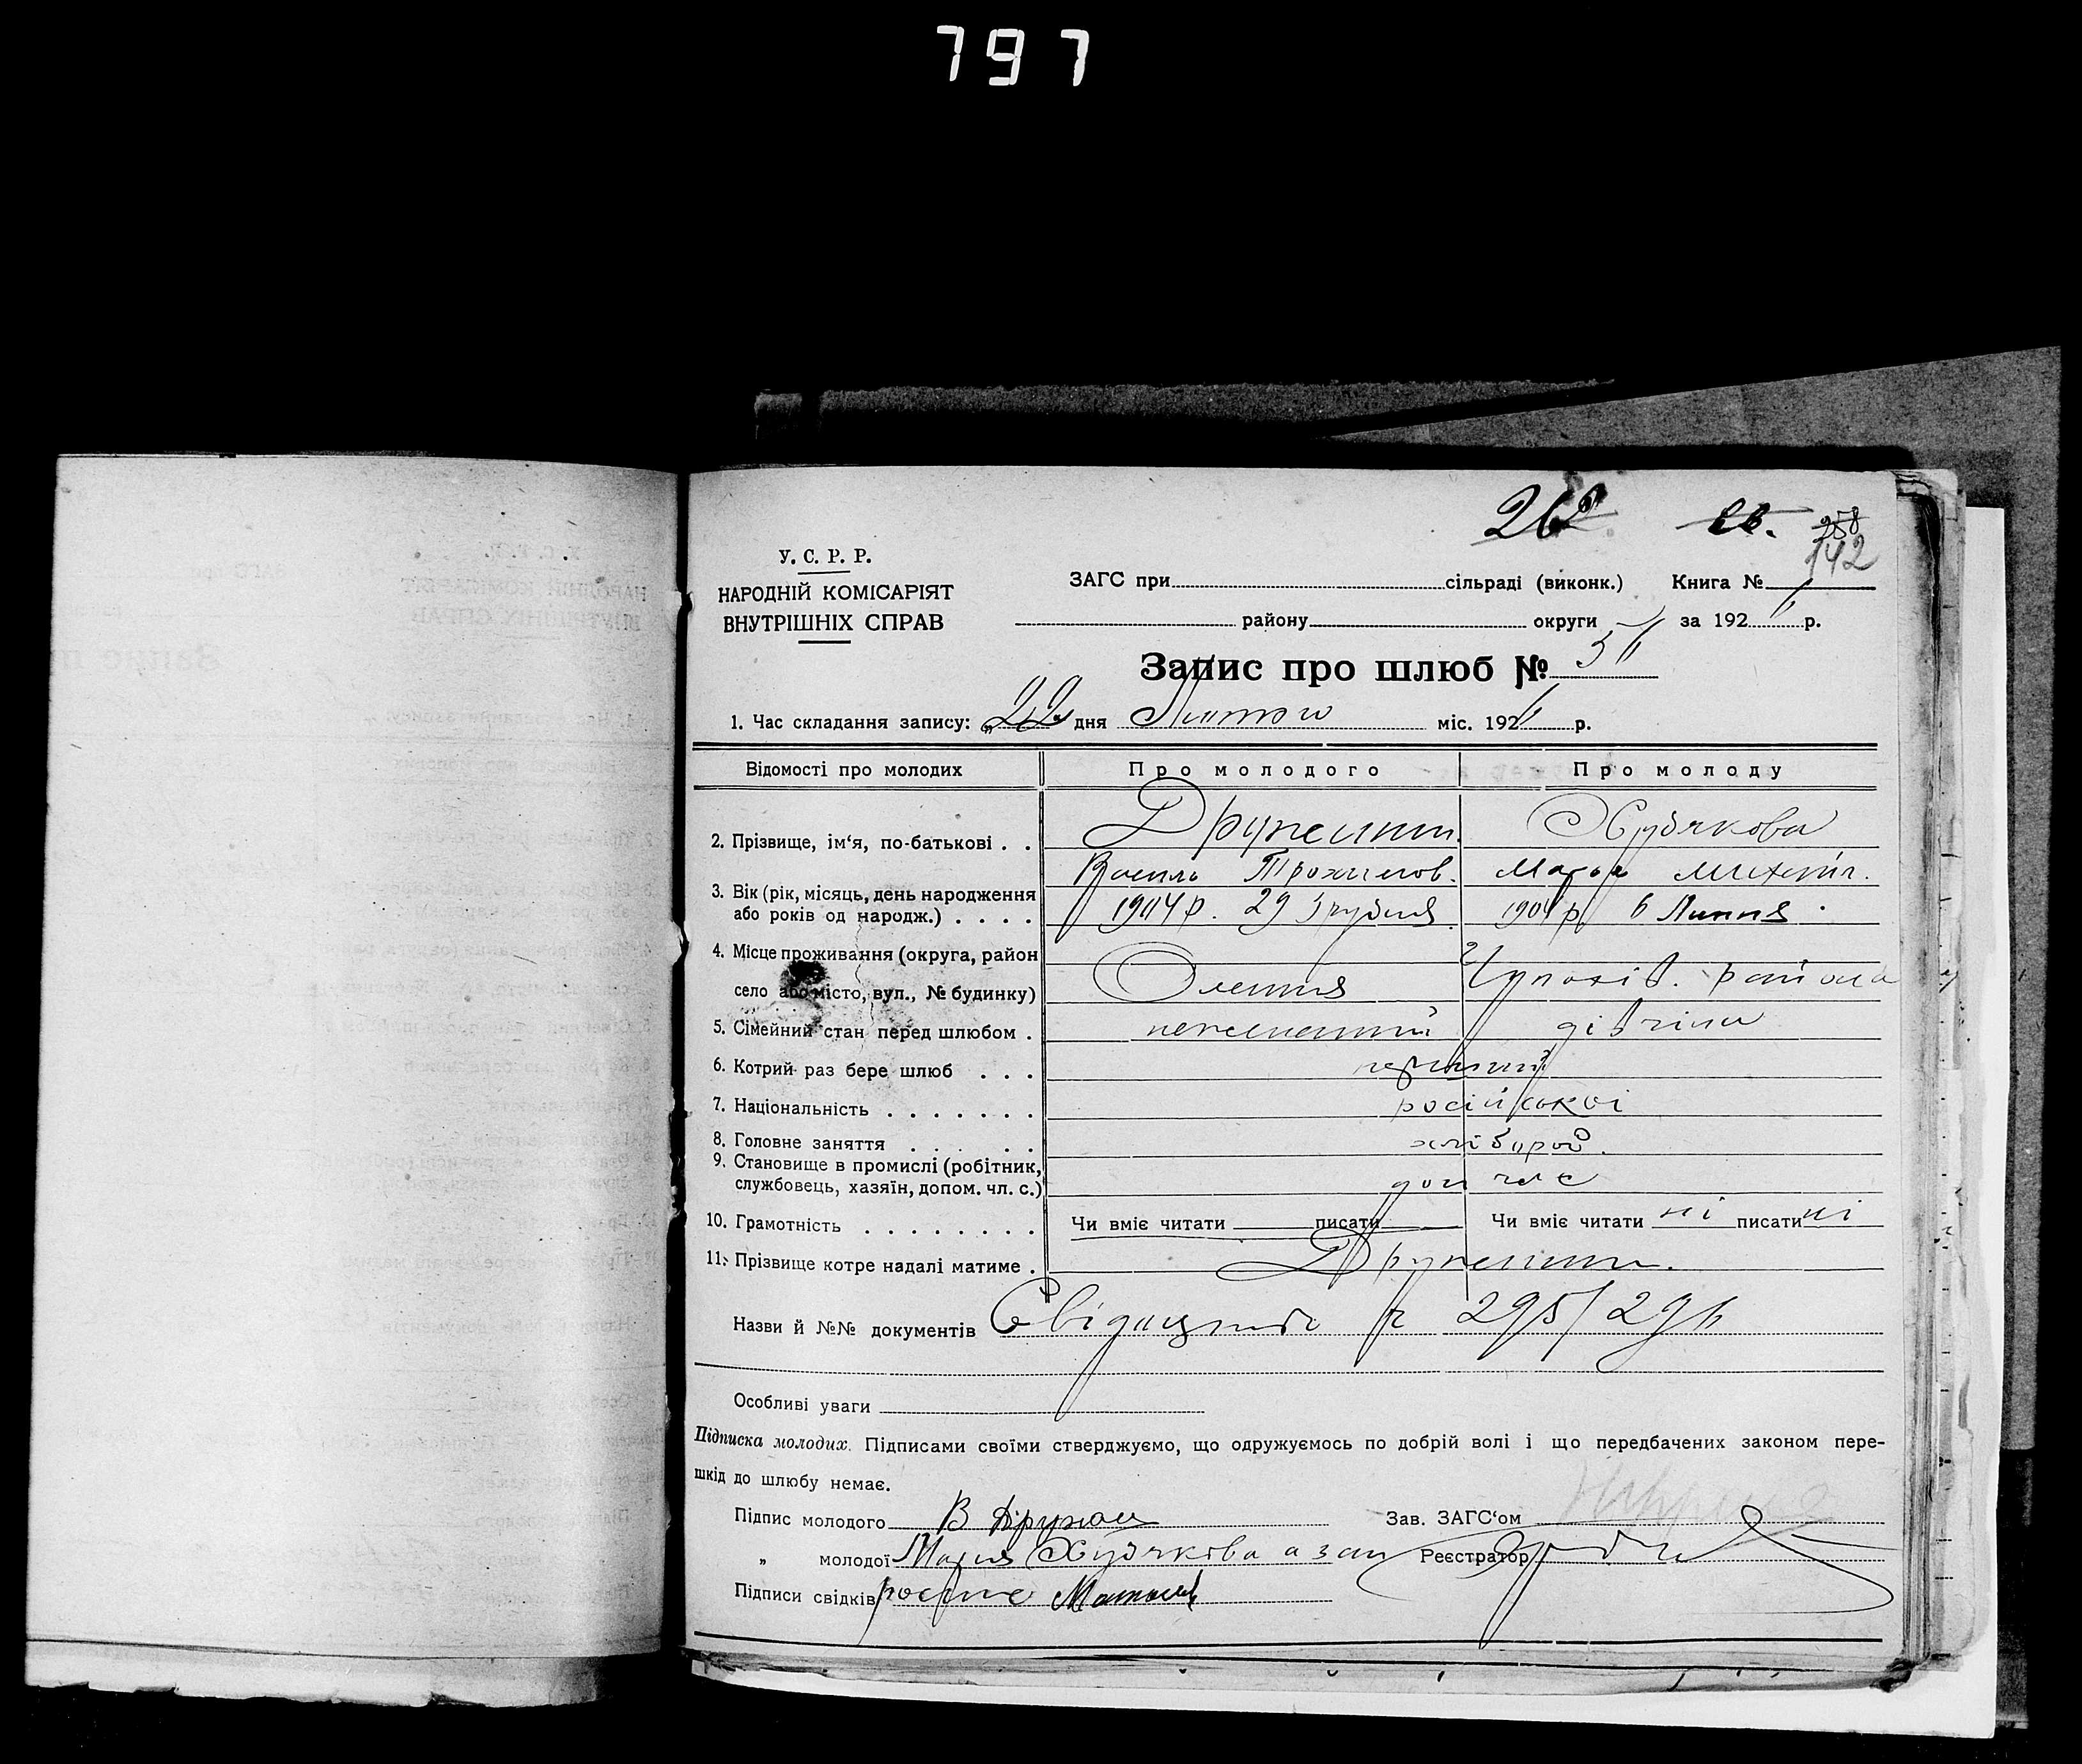 797
262 258
142
У. С. Р. Р.
НАРОДНІЙ КОМІСАРІЯТ
ВНУТРІШНІХ СПРАВ
ЗАГС при сільраді (виконк.) Книга №
району округи за 192 р.
Запис про шлюб №
1. Час складання запису: „22 дня Лютого міс. 192 р.
Відомості про молодих Про молодого Про молоду
2. Прізвище, ім‘я, по-батькові . . Худякова
Василь Трохимов. Марія Михайл.
3. Вік (рік, місяць, день народження
або років од народж.) . . . . 1904 р. 29 Грудня 1904 р 6 Липня
4. Місце проживання (округа, район
село або місто, вул., № будинку) району
5. Сімейний стан перед шлюбом . нежонатий дівчина
6. Котрий раз бере шлюб . . . перший
7. Національність . . . . . . . російської
8. Головне заняття . . . . . хлібороб.
9. Становище в промислі (робітник,
службовець, хазяїн, допом. чл. с.) доп чл с
10. Грамотність . . . . . . . . Чи вміє читати писати Чи вміє читати ні писати ні
11. Прізвище котре надалі матиме .
Назви й №№ документів 295/296
Особливі уваги
Підписка молодих. Підписами своїми стверджуємо, що одружуємось по добрій волі і що передбачених законом пере-
шкід до шлюбу немає.
Підпис молодого В Зав. ЗАГС‘ом
„ молодої Мария Худякова а за Реєстратор
Підписи свідків